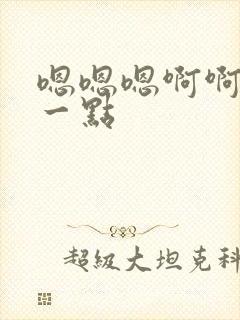 嗯嗯嗯啊啊
一點
超級大坦克科